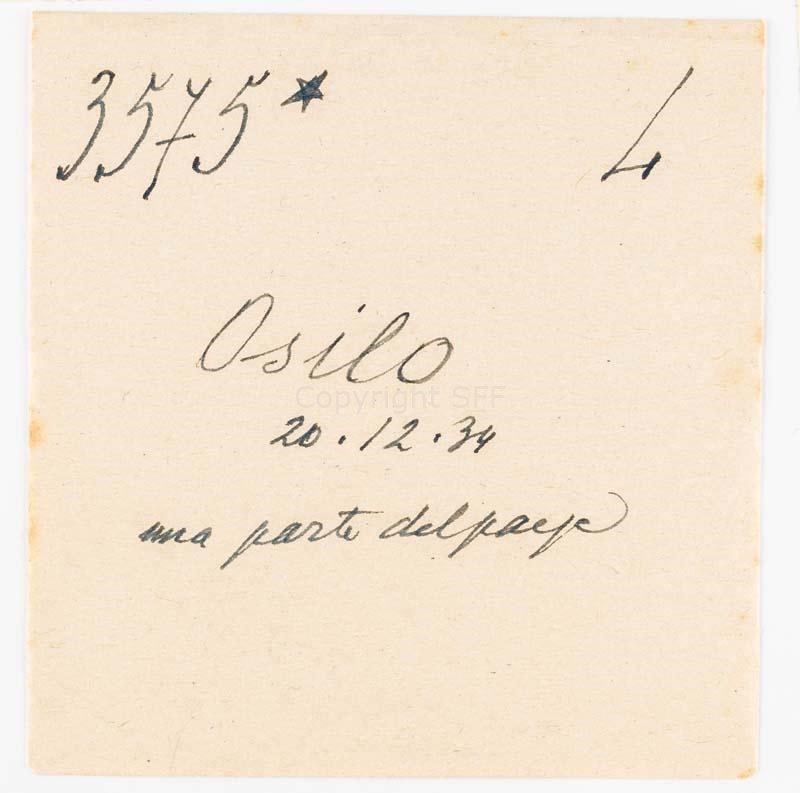 3575* L
Osilo
Copyright SFF
20.12.34
una parte del paese